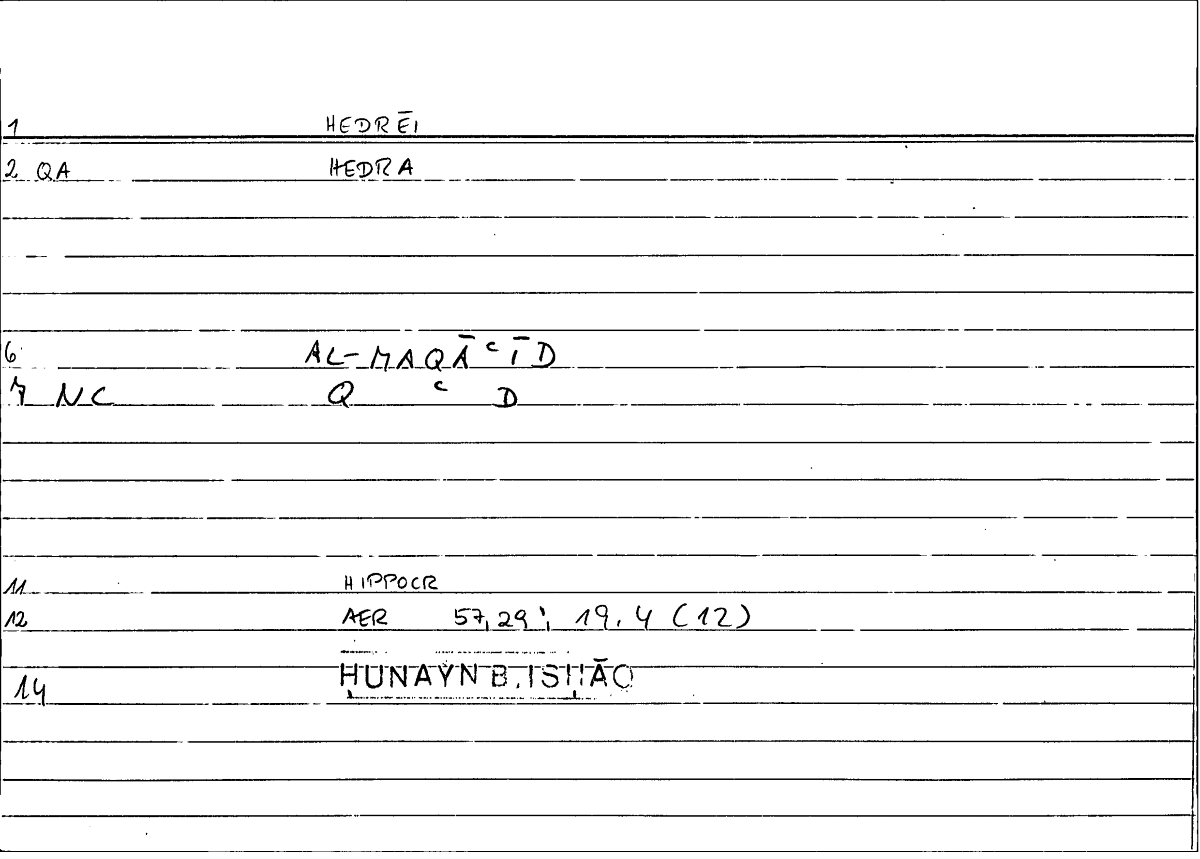 1 HEDRĒI
2 QA HEDRA
6 AL-MAQĀʿĪD
7 NC Q ʿ D
11 HIPPOCR
12 AER 57,29; 19,4 (12)
14 ḤUNAYN B. ISḤĀQ